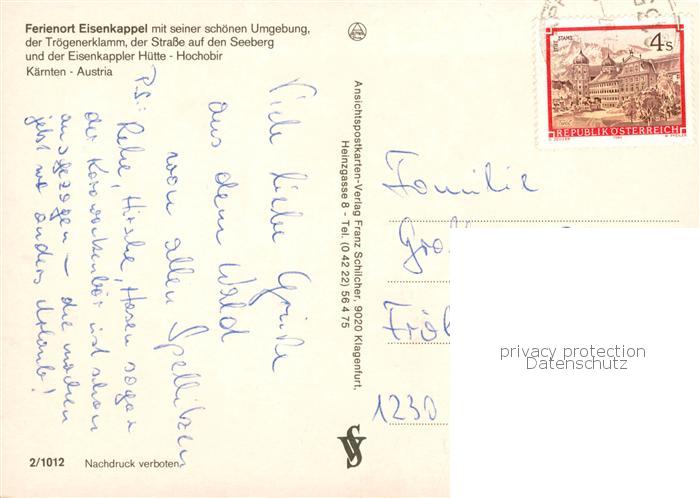 Ferienort Eisenkappel mit seiner schönen Umgebung,
der Trögenerklamm, der Straße auf den Seeberg
und der Eisenkappler Hütte - Hochobir
Kärnten - Austria
Viele liebe Grüße
aus dem Wald
von allen
P.S.: Rehe, Hirsche, Hasen sogar
der Karawankenbär ist schon
ausgezogen – die machen
jetzt wo anders Urlaub!
2/1012 Nachdruck verboten.
Ansichtspostkarten-Verlag Franz Schilcher, 9020 Klagenfurt,
Heinzgasse 8 - Tel. (0 42 22) 56 4 75
STIFT STAMS
4 S
REPUBLIK ÖSTERREICH
Familie
1230
privacy protection
Datenschutz